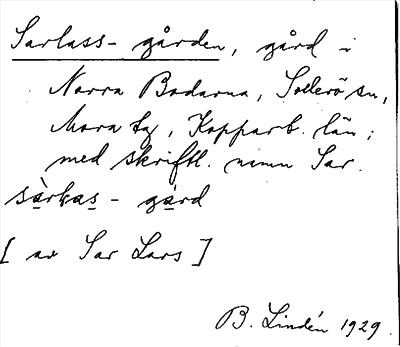 Sarlass-gården, gård i
Norra Bodarna, Sollerö sn,
Mora tg, Kopparb. län;
med skriftl. namn Sar.
sàrkas - gárd
[ av Sar Lars ]
B. Lindén 1929.